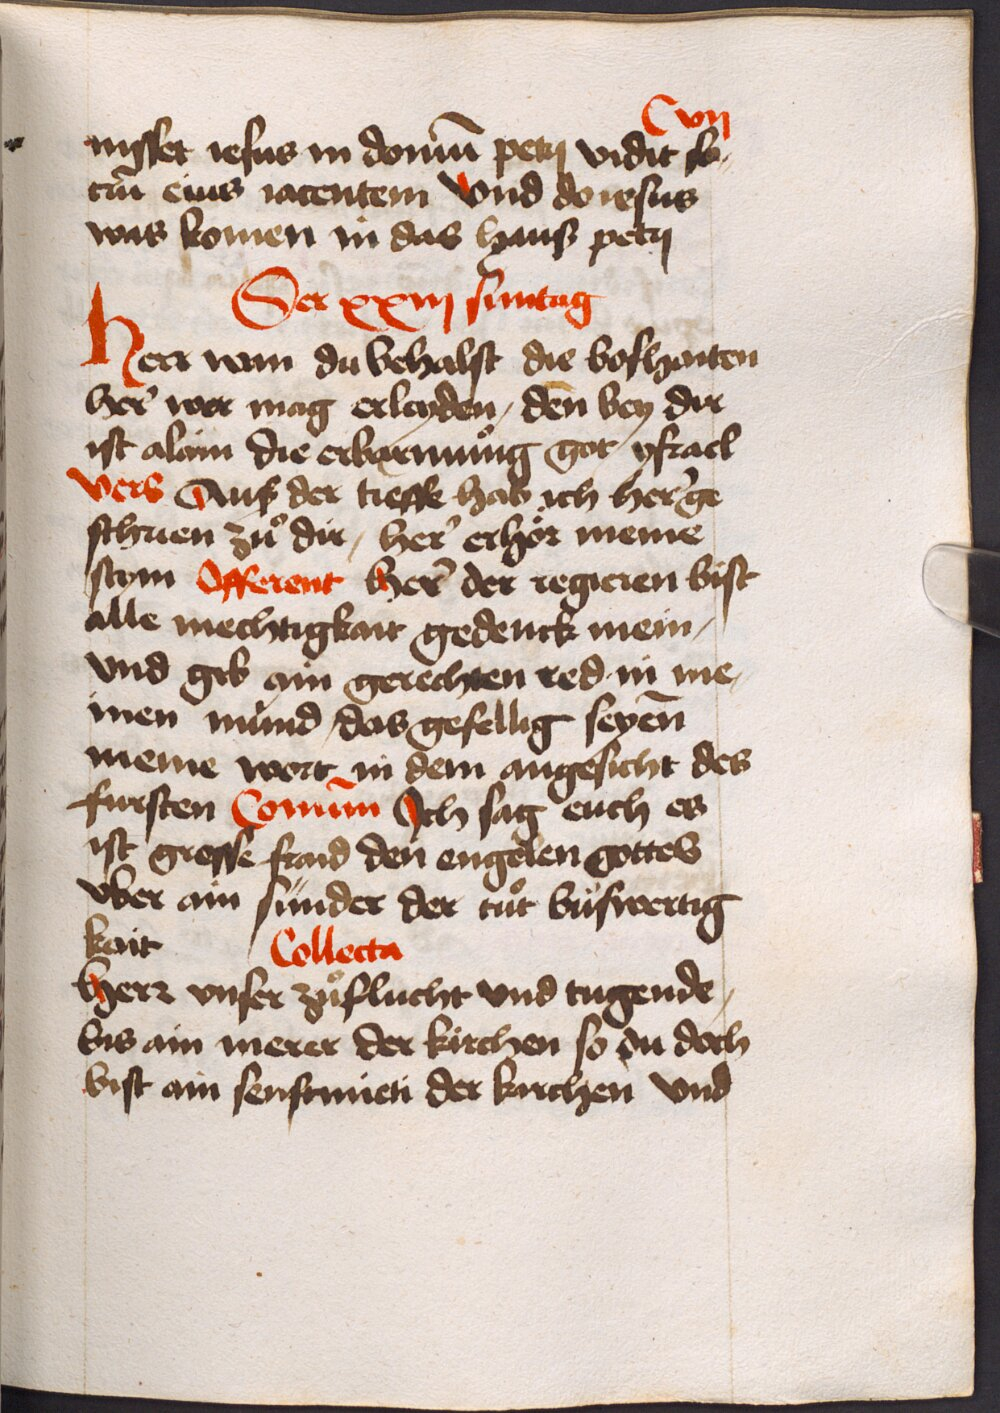 C vij
nisset iesus in domū petrj vidit so¬
crū eius iacentem Vnd do iesus
was komen in das hauß petrj
Der xxiij suntag
Herr wan du behalst die boshaiten
her͛ wer mag erleyden / den̄ bey dir
ist alain die erbarmu̇ng got ysrael
vers Auß der tieffe hab ich her͛ ge
schrien zů dir / her͛ erhör meine
stym Offerent Her͛ der regieren bist
alle mechtigkait gedenck mein /
vnd gib ain gerechten red in me¬
inen mund / das gefellig seyen̄
meine wort in dem angesicht des
fursten Comūn Ich sag euch es
ist grosse fraid den engelen gottes
vber ain sünder der tůt bůswertig
kait Collecta
Herr vnser zůflucht vnd tugende /
bis ain merer der kirchen so du doch
bist ain senftmieti der kirchen vnd